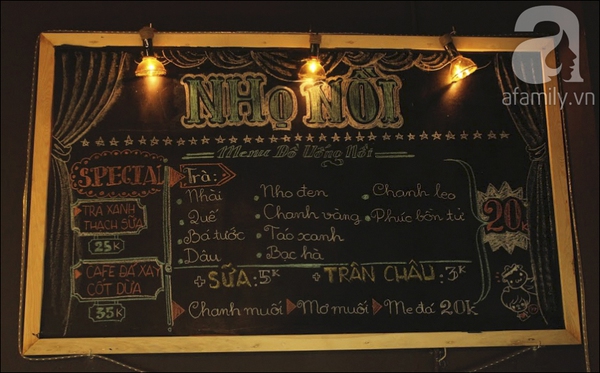 a
afamily.vn
NHỌ NỒI
Menu Đồ Uống Nồi
SPECIAL
TRÀ XANH
THẠCH SỮA
25K
CAFE ĐÁ XAY
CỐT DỪA
35K
Trà:
Nhài
Quế
Bá tước
Dâu
Nho đen
Chanh vàng
Táo xanh
Bạc hà
Chanh leo
Phúc bồn tử
20K
+ SỮA: 5K + TRÂN CHÂU: 3K
Chanh muối Mơ muối Me đá 20K